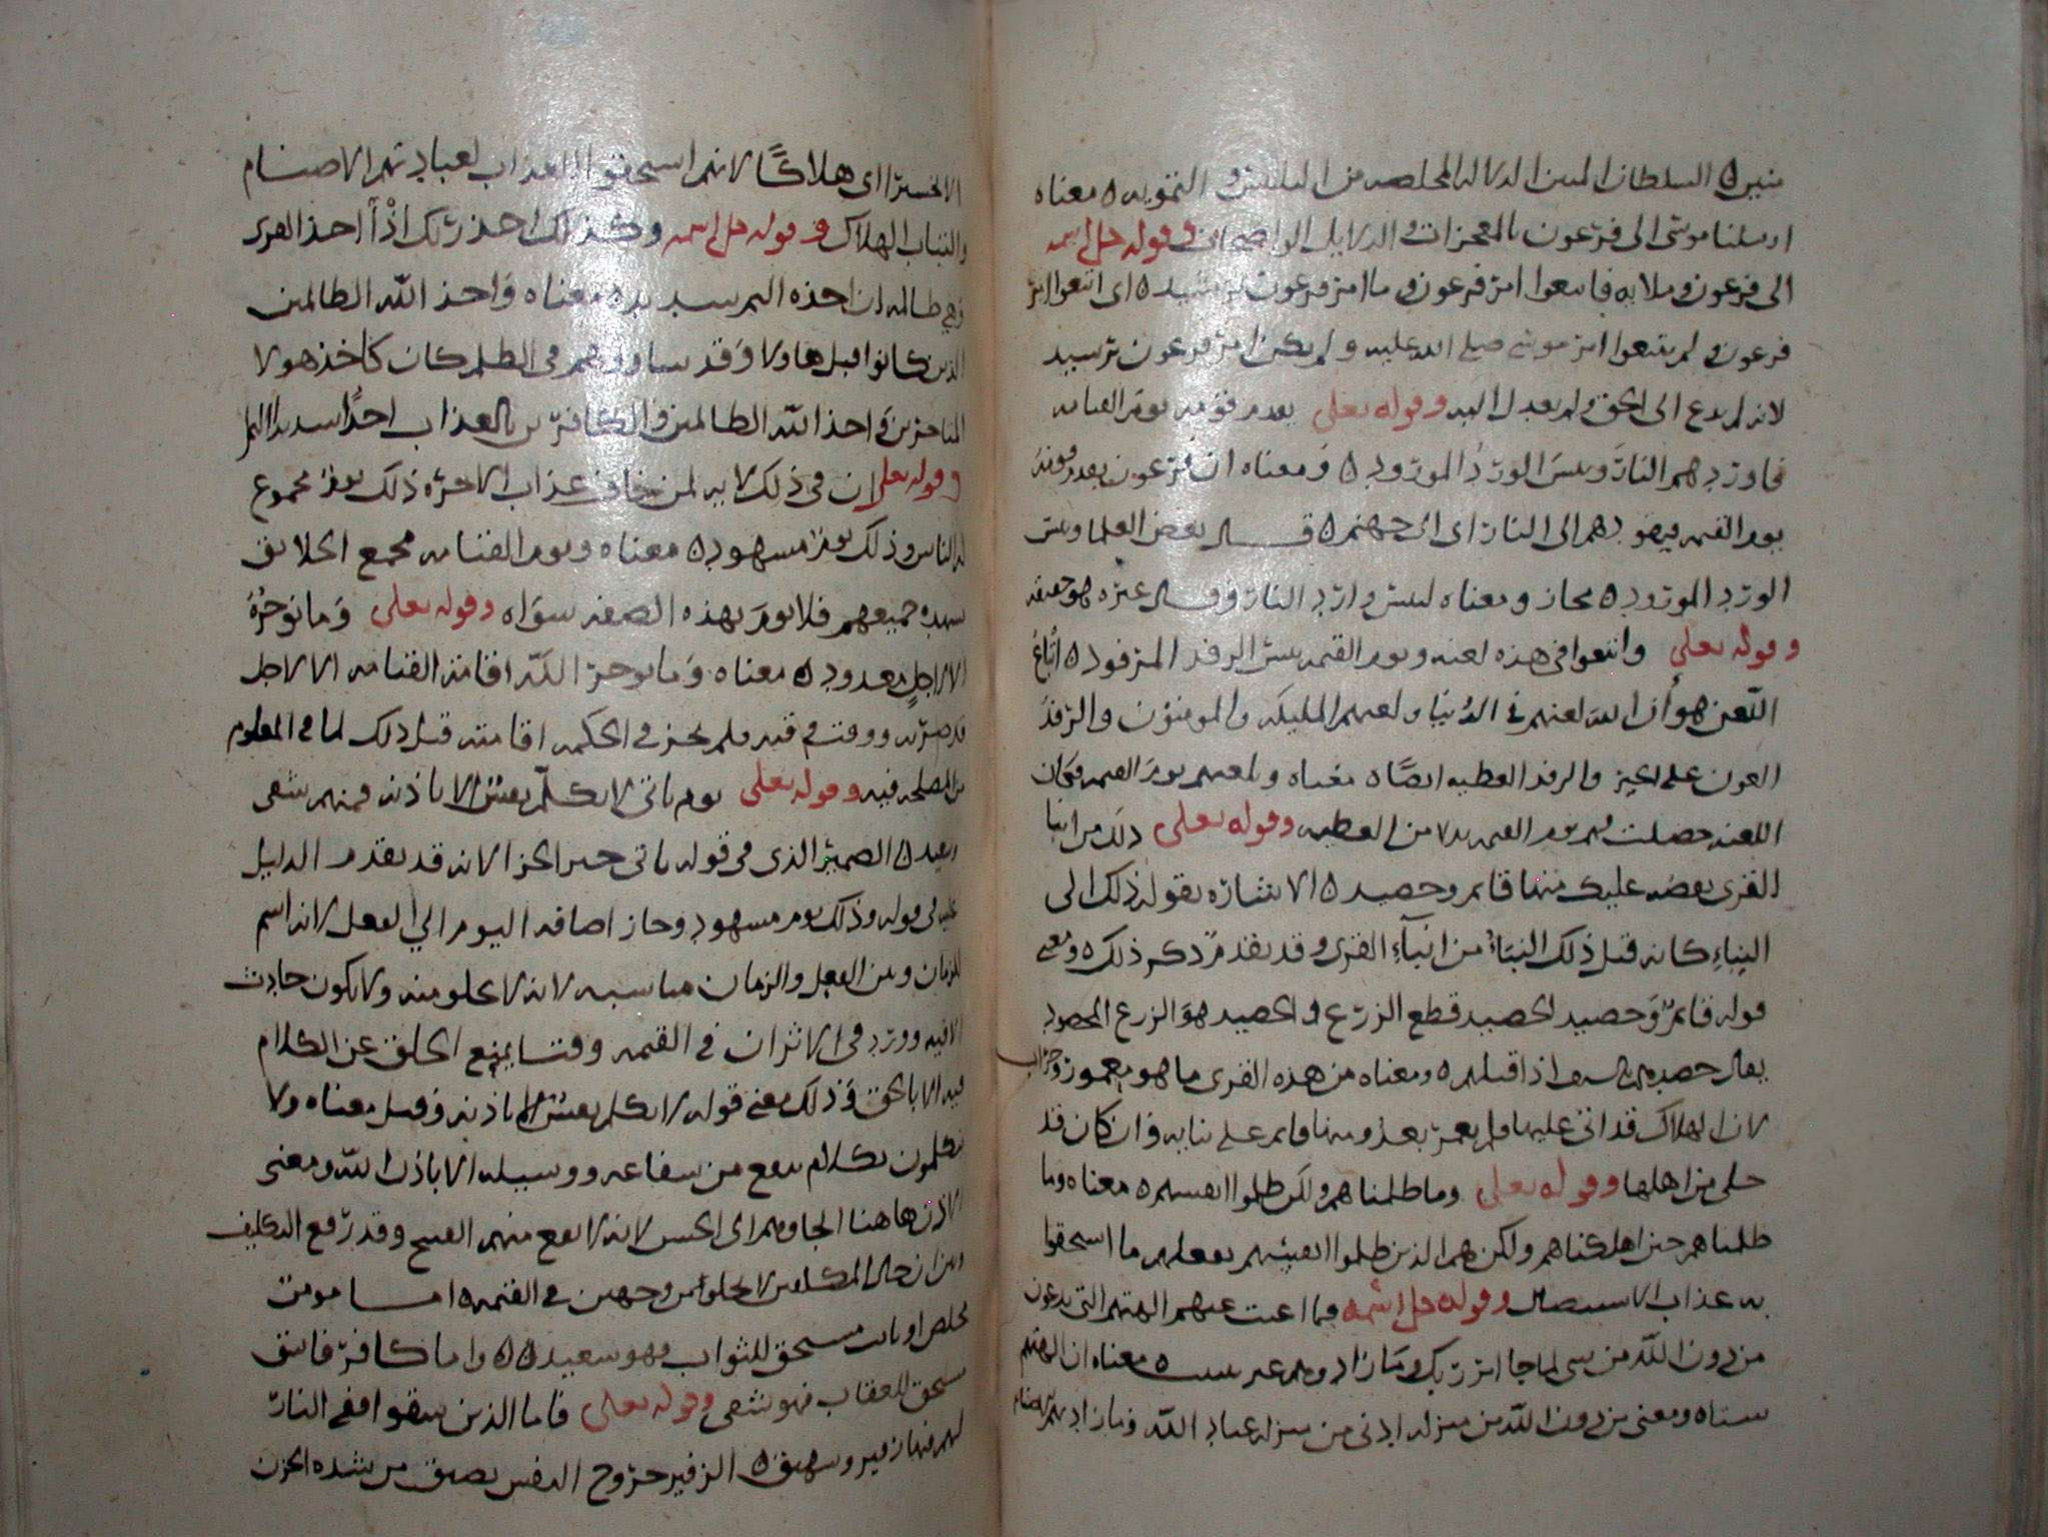 مبين ٥ السلطان المبين الدلاله المخلصه من التلبيس والتمويه ٥ معناه
ارسلنا موسى الى فرعون بالمعجزات والدلايل الواضحات وقوله جل اسمه
الى فرعون وملايه فاتبعوا امر فرعون وما امر فرعون برشيد ٥ اى اتبعوا امر
فرعون ولم يتبعوا امر موسى صلى الله عليه ولم يكن امر فرعون برشيد
لانه لم يدع الى الحق ولم يعدل اليه وقوله تعلى يقدم قومه يوم القيامه
فاوردهم النار وبيس الورد المورود ٥ ومعناه ان فرعون يقدم قومه
يوم القيمه فيقودهم الى النار اى الى جهنم ٥ قال بعض العلما وبيس
الورد المورود ٥ مجاز ومعناه ليس وارد النار وقال غيره هو حقيقه
وقوله تعلى واتبعوا فى هذه لعنه ويوم القيمه بيس الرفد المرفود ٥ اتباع
اللعن هو ان الله لعنهم فى الدنيا ولعنهم المليكه والمومنون والرفد
العون على الخير والرفد العطيه ايضا ٥ معناه وتلعنهم يوم القيمه فكان
اللعنه حصلت لهم يوم القيمه بدلا من العطيه وقوله تعلى ذلك من انبا
القرى نقصه عليك منها قايم وحصيد ٥ الاشاره بقوله ذلك الى
النباء كانه قيل ذلك النباء من انباء القرى وقد تقدم ذكر ذلك ٥ ومعنى
قوله قايم وحصيد الحصيد قطع الزرع والحصيد هو الزرع المحصود
يقال حصدهم بالسيف اذا قتلهم ٥ ومعناه من هذه القرى ما هو معمور وخراب
لان الهلاك قد اتى عليها ولم يعمر بعد ومنها قايم على بنايه وان كان قد
خلى من اهلها وقوله تعلى وما ظلمناهم ولكن ظلموا انفسهم ٥ معناه وما
ظلمناهم حين اهلكناهم ولكن هم الذين ظلموا انفسهم بفعلهم ما استحقوا
به عذاب الاستيصال وقوله جل اسمه فما اغنت عنهم الهتهم التى يدعون
من دون الله من شى لما جا امر ربك وما زادوهم غير تتبيب ٥ معناه ان الهتهم
ومعنى من دون الله من منزله ادنى من منزله عباد الله وما زادتهم الاصنام
الا خسرا اى هلاكًا لانهم استحقوا العذاب لعبادتهم الاصنام
والتباب الهلاك وقوله جل اسمه وكذلك اخذ ربك اذا اخذ القرى
وهي ظالمه ان اخذه اليم شديد ٥ معناه واخذ الله الظالمين
الذين كانوا قبل هاولا وقد ساووهم فى الظلم كان كاخذ هولا
المتاخرين واخذ الله الظالمين والكافرين بالعذاب اخذا شديدا اليم
وقوله تعلى ان فى ذلك لايه لمن خاف عذاب الاخره ذلك يوم مجموع
له الناس وذلك يوم مشهود ٥ معناه ويوم القيامه مجمع الخلايق
يشهده جميعهم فلا يوم بهذه الصفه سواه وقوله تعلى وما نوخره
الا لاجل معدود ٥ معناه وما نوخر اقامه القيامه الا لاجل
قد ووقت فلم يجز فى الحكمه اقامته قبل ذلك لما فى المعلوم
من المصلحه فيه وقوله تعلى يوم ياتى لا تكلم نفس الا باذنه فمنهم شقى
وسعيد ٥ الضمير الذى فى قوله ياتى ضمير الجزا لانه قد تقدم الدليل
عليه فى قوله وذلك يوم مشهود وجاز اضافه اليوم الى الفعل لانه اسم
للزمان وبين الفعل والزمان مناسبه لانه لا يخلو منه ولا يكون حادث
الا فيه وورد فى الاثر ان فى القيمه وقتا يمنع الخلق عن الكلام
فيه الا بالحق وذلك معنى قوله لا تكلم نفس الا باذنه وقيل معناه ولا
يتكلمون بكلام ينفع من شفاعه ووسيله الا باذن الله ومعنى
الاذن هاهنا الجاوهم الى الحسن لانه لا يقع منهم القبيح وقد رفع التكليف
وبين ان حال المكلفين لا يخلوا من وجهين فى القيمه ٥ اما مومن
مخلص او تايب مستحق للثواب فهو سعيد ٥٥ واما كافر فاسق
مستحق للعقاب فهو شقى وقوله تعلى فاما الذين شقوا ففى النار
لهم فيها زفير وشهيق ٥ الزفير خروج النفس بضيق من شده الحزن